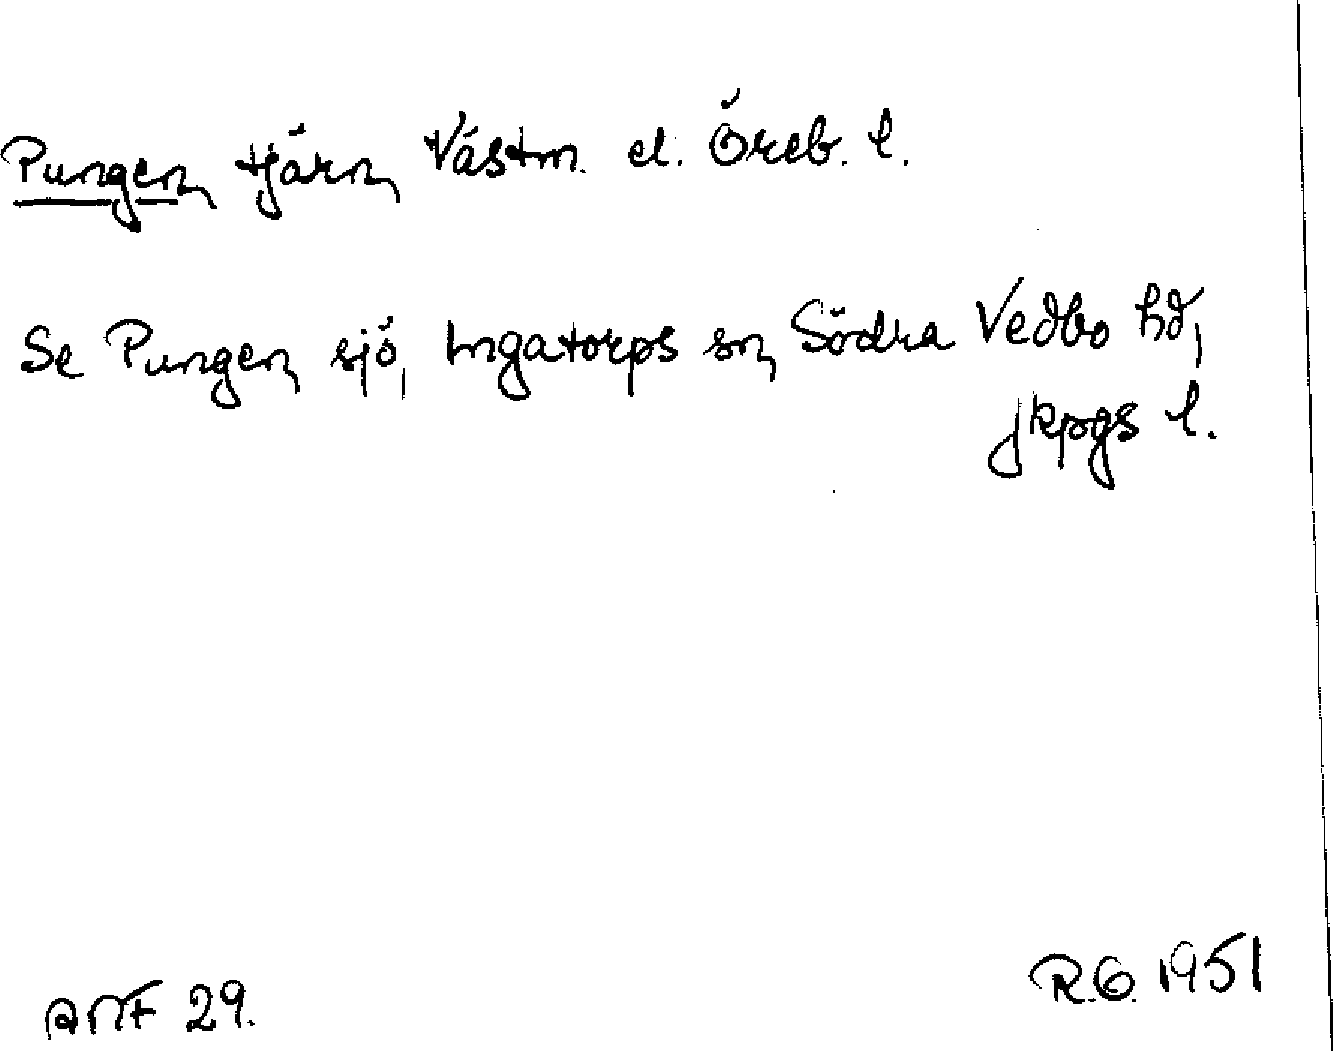 Pungen, tjärn, Västm. el. Öreb. l.
Se Pungen, sjö, Ingatorps sn, Södra Vedbo hd,
Jkpgs l.
ANF 29.
R.G. 1951